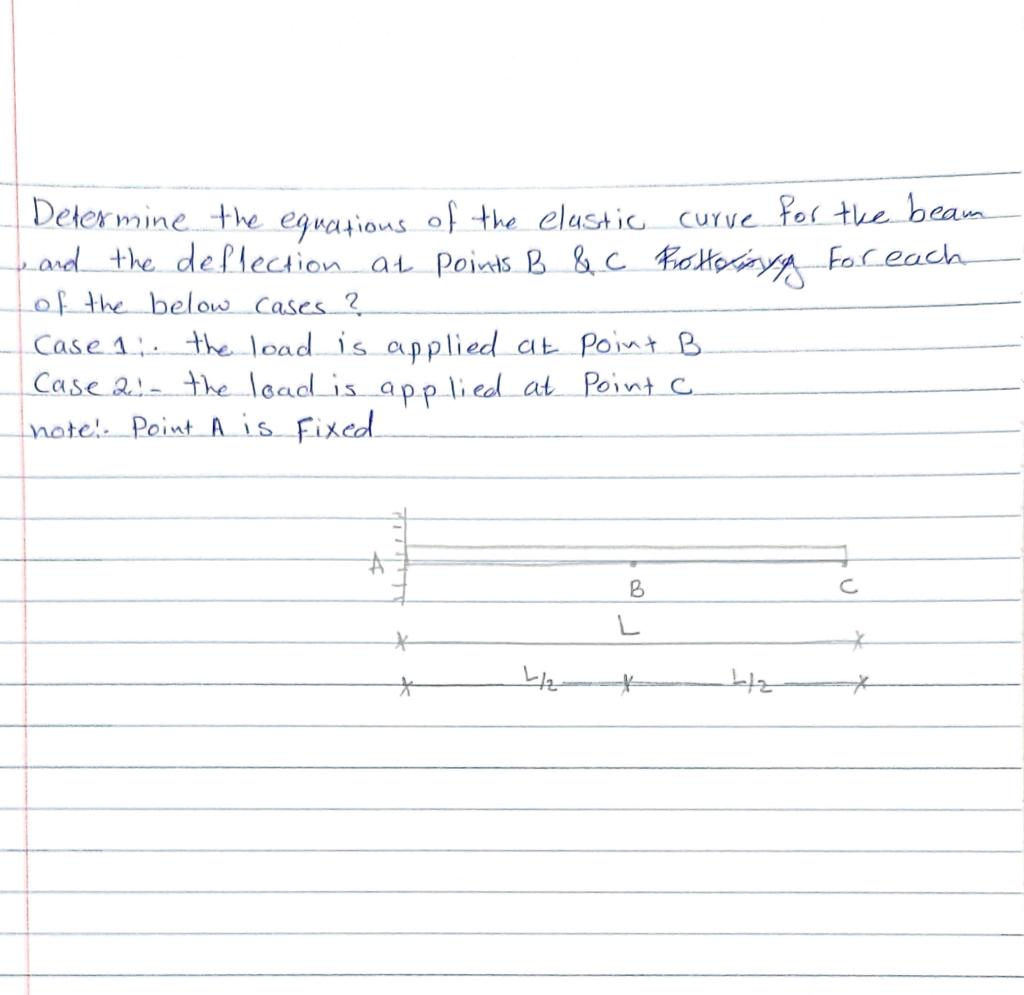 Determine the equations of the elastic curve for the beam
and the deflection at points B & C For each
of the below cases ?
Case 1:- the load is applied at Point B
Case 2:- the load is applied at Point C
note:- Point A is Fixed
A
B
C
L
L/2
L/2